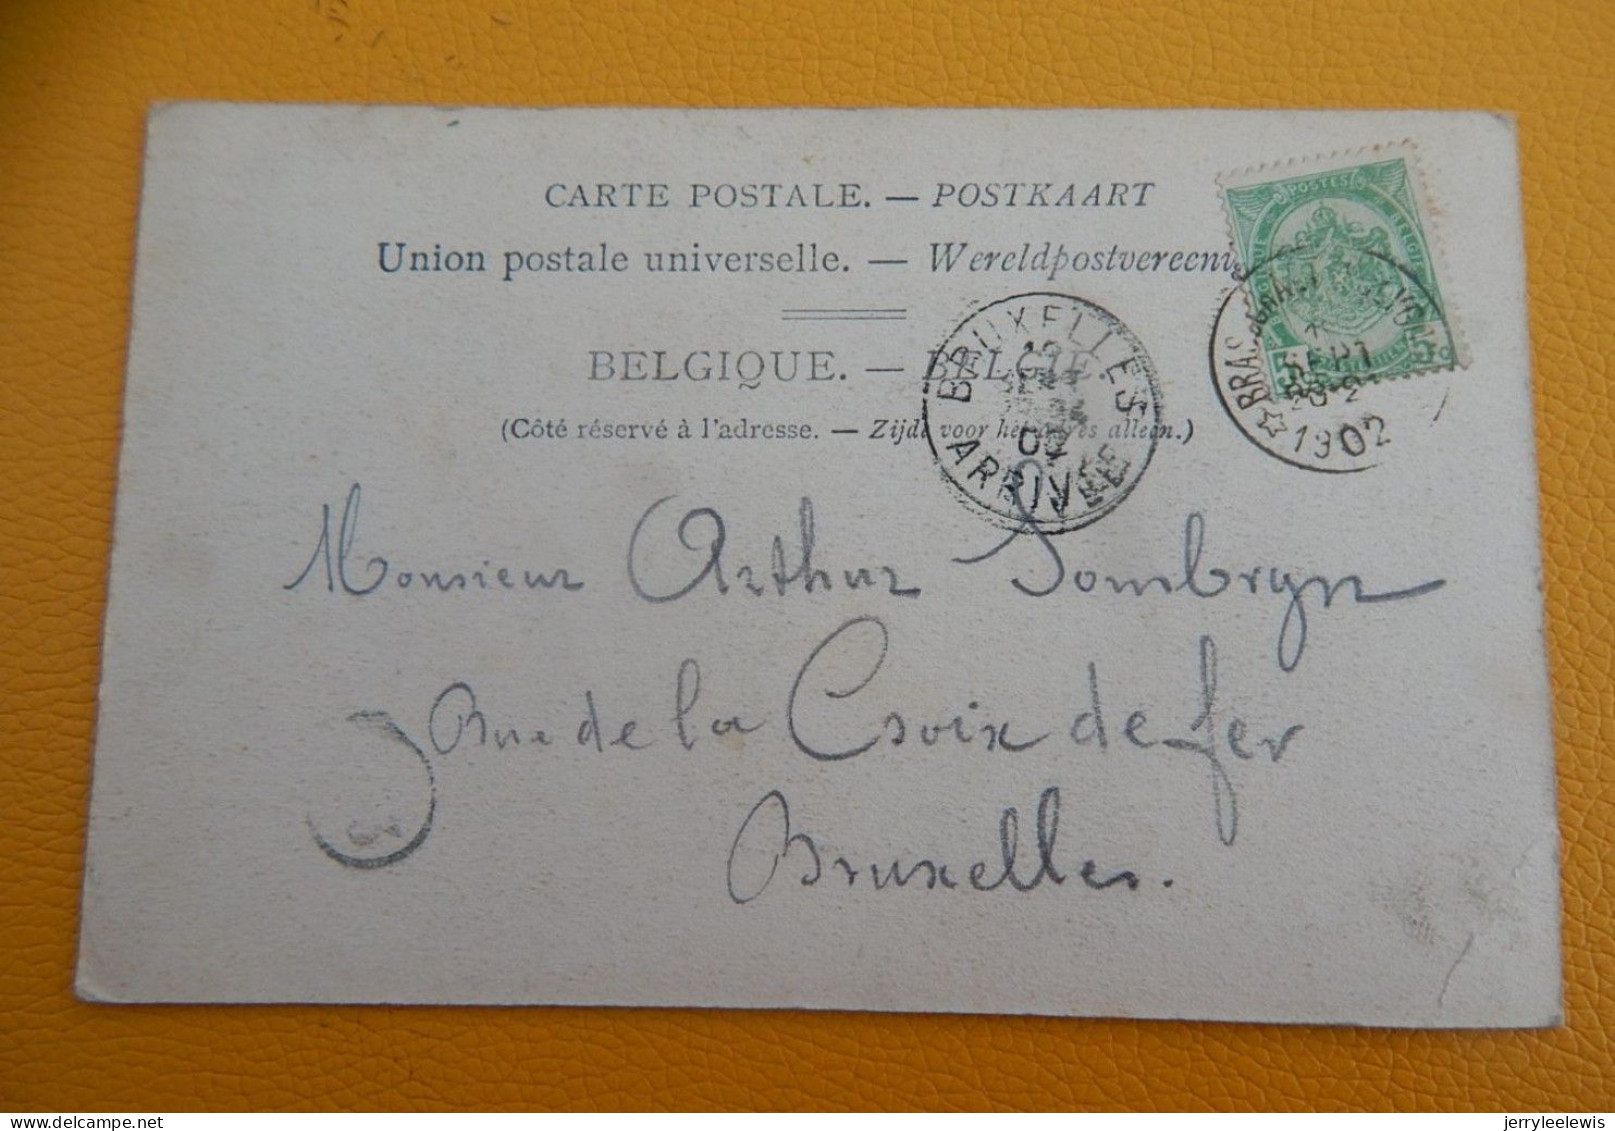 CARTE POSTALE. — POSTKAART
Union postale universelle. — Wereldpostvereeni
BELGIQUE. — BELGIE.
(Côté réservé à l'adresse. — Zijde voor het adres alleen.)
POSTES
BELGIQUE
5
5
BRUXELLES
02
ARRIVÉE
BRAS
SEPT
1902
Monsieur Arthur Sombryn
Rue de la Croix de fer
Bruxelles.
jerryleelewis